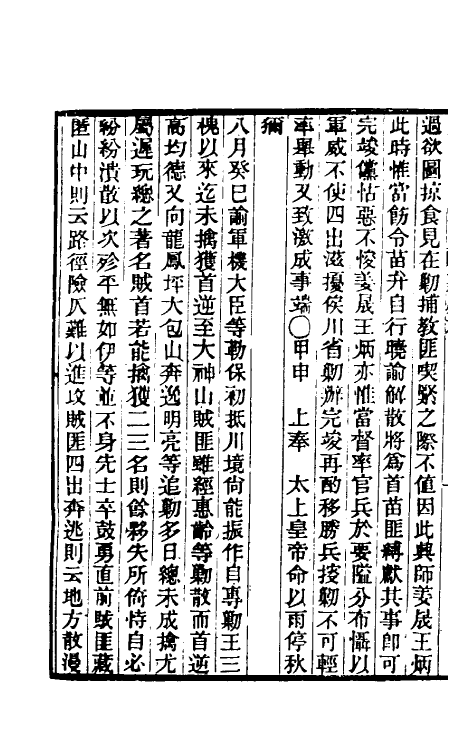 過欲圖掠食見在勦捕教匪喫緊之際不值因此興師姜晟王炳
此時惟當飭令苗弁自行曉諭解散將爲首苗匪縛獻其事卽可
完竣儻怙惡不悛姜晟王炳亦惟當督率官兵於要隘分布懾以
軍威不使四出滋擾俟川省勦辦完竣再酌移勝兵搜勦不可輕
率舉動又致激成事端〇甲申　上奉　太上皇帝命以雨停秋
獮
八月癸巳諭軍機大臣等勒保初抵川境尙能振作自專勦王三
槐以來迄未擒獲首逆至大神山賊匪雖經惠齡等勦散而首逆
高均德又向龍鳳坪大包山奔逸明亮等追勦多日總未成擒尤
屬遲玩總之著名賊首若能擒獲二三名則餘夥失所倚恃自必
紛紛潰散以次殄平無如伊等並不身先士卒鼓勇直前賊匪藏
匿山中則云路徑險仄難以進攻賊匪四出奔逃則云地方散漫